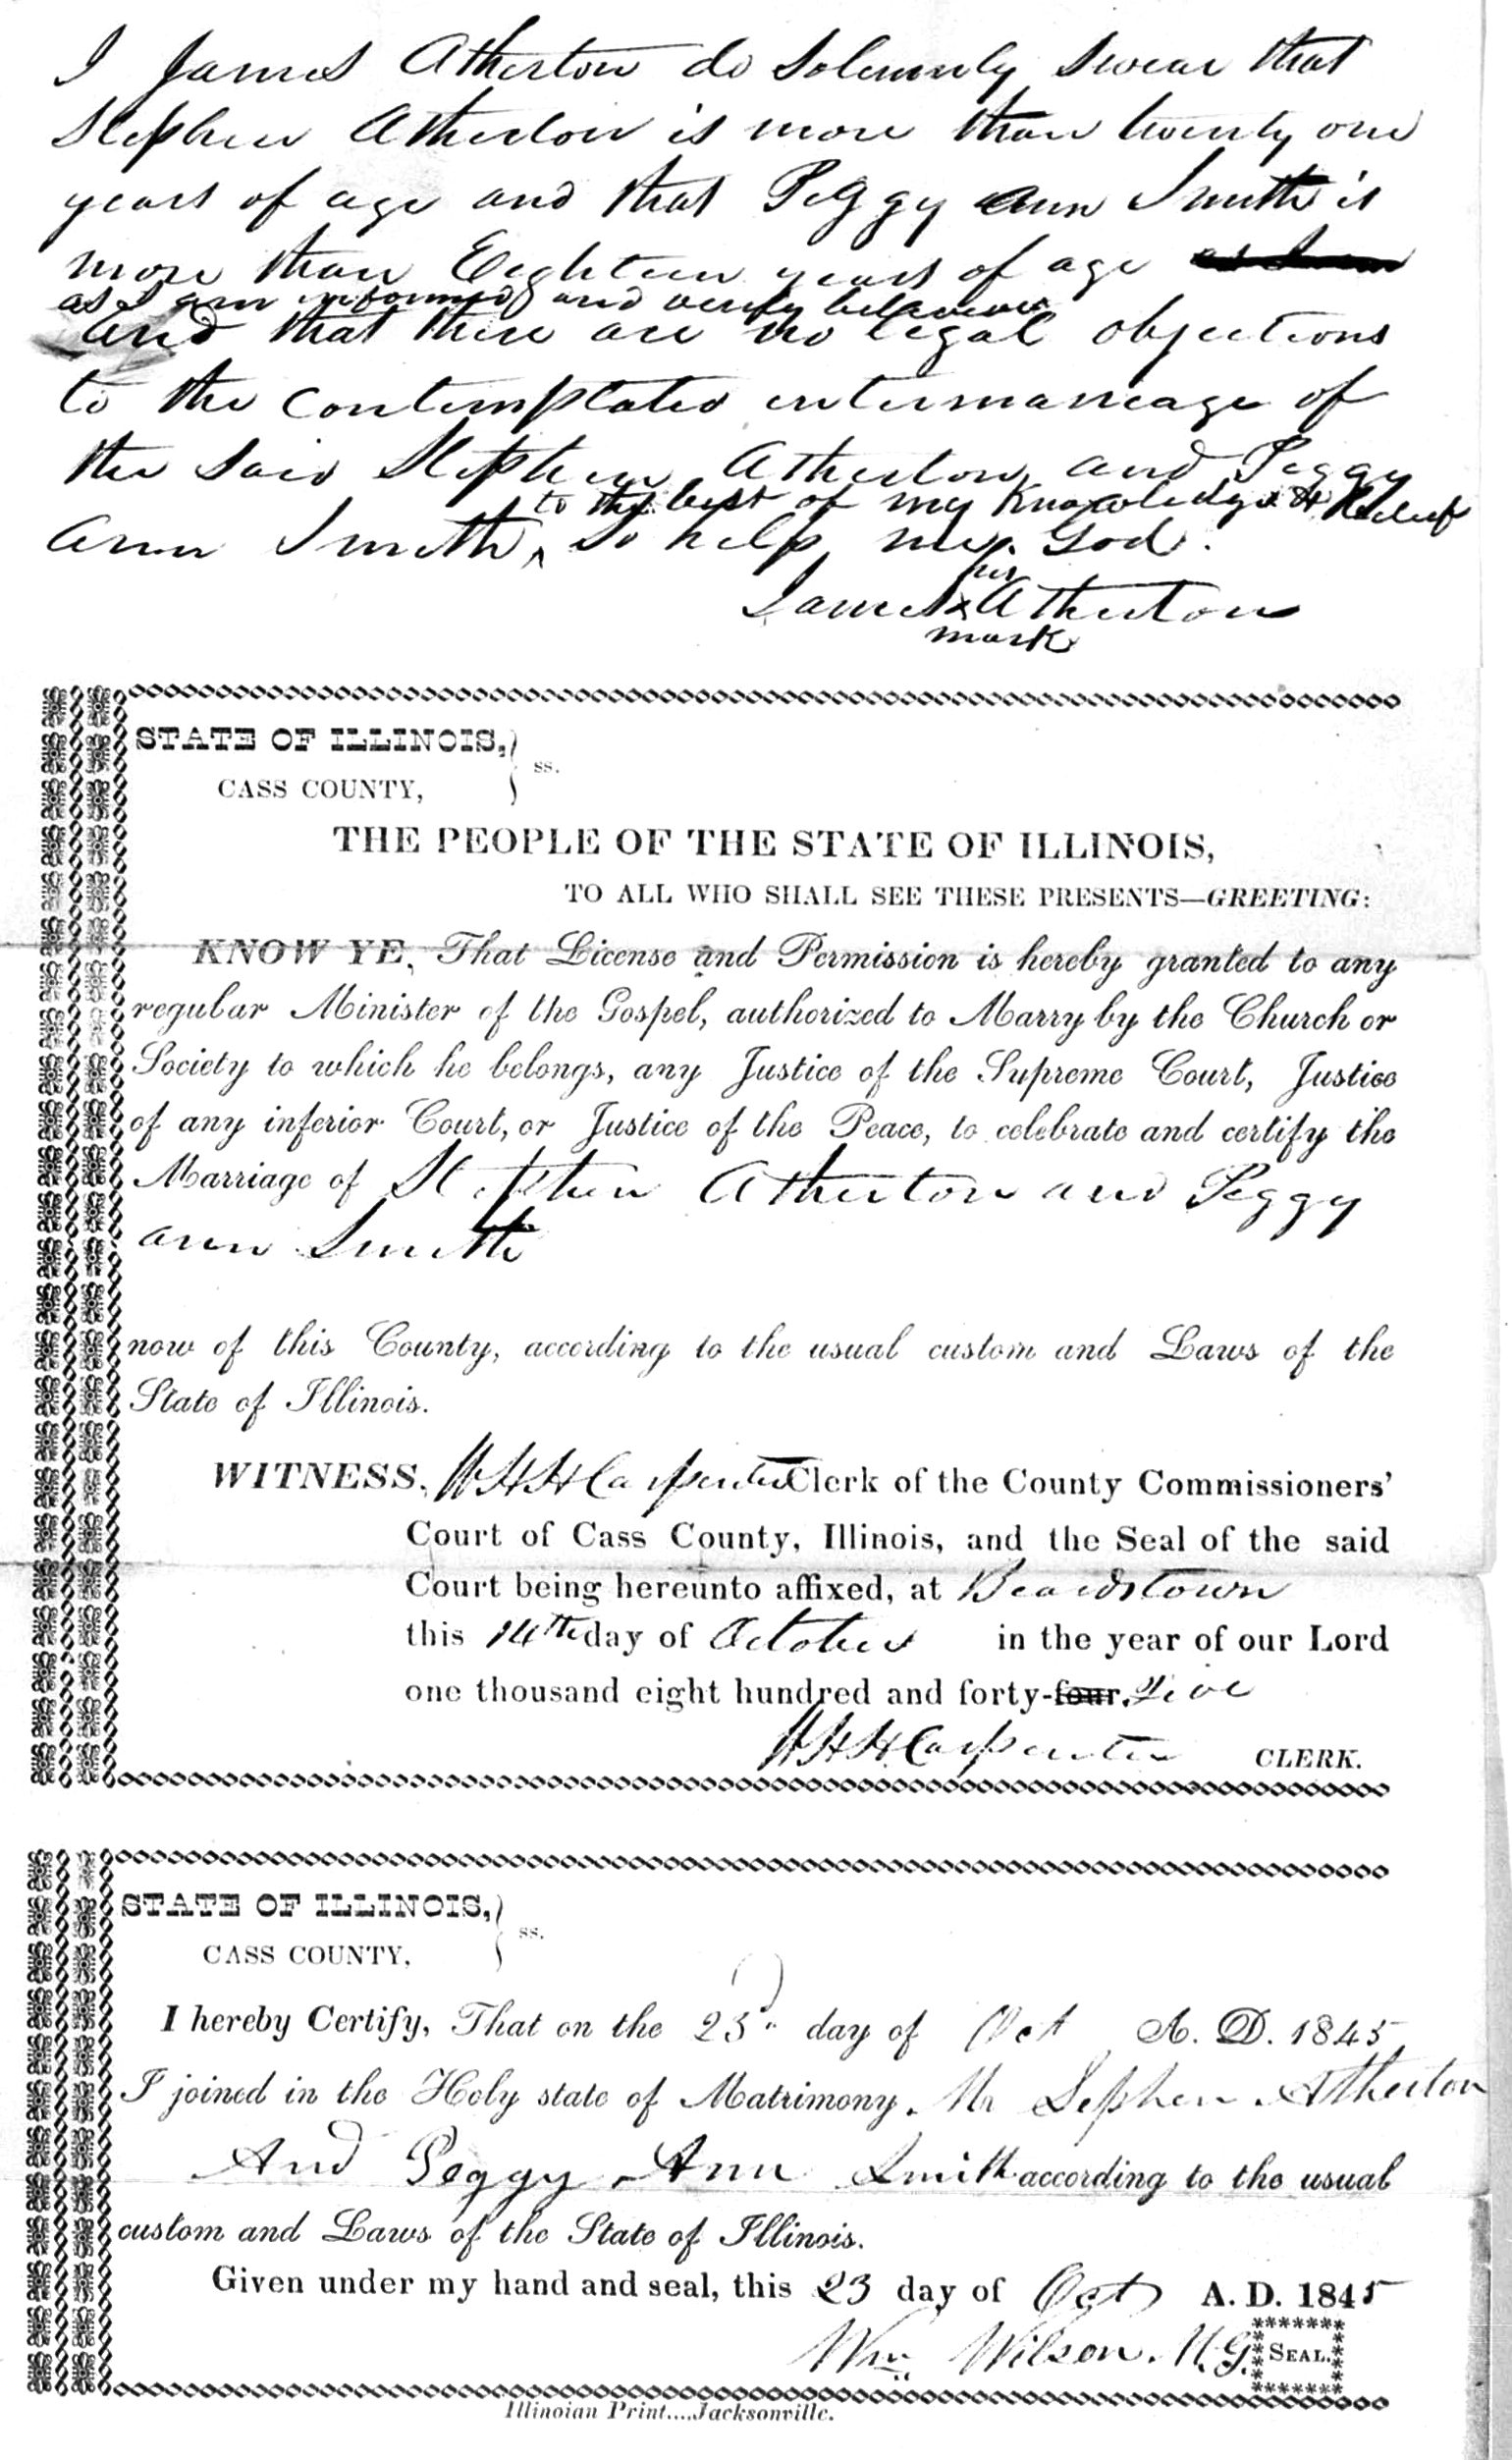 I James Atherton do Solemnly Swear that
Stephen Atherton is more than twenty one
years of age and that Peggy Ann Smith is
more than Eighteen years of age
as I am informed and verily believe
and that there are no legal objections
to the Contemplated intermarriage of
the Said Stephen Atherton and Peggy
to the best of my Knowledge & Belief
Ann Smith ^ So help me God.
his
James x Atherton
mark
STATE OF ILLINOIS, } ss.
CASS COUNTY,
THE PEOPLE OF THE STATE OF ILLINOIS,
TO ALL WHO SHALL SEE THESE PRESENTS—GREETING:
KNOW YE, That License and Permission is hereby granted to any
regular Minister of the Gospel, authorized to Marry by the Church or
Society to which he belongs, any Justice of the Supreme Court, Justice
of any inferior Court, or Justice of the Peace, to celebrate and certify the
Marriage of Stephen Atherton and Peggy
Ann Smith
now of this County, according to the usual custom and Laws of the
State of Illinois.
WITNESS, W H H Carpenter Clerk of the County Commissioners'
Court of Cass County, Illinois, and the Seal of the said
Court being hereunto affixed, at Beardstown
this 14th day of October in the year of our Lord
one thousand eight hundred and forty-four. Five
W H H Carpenter CLERK.
STATE OF ILLINOIS, } ss.
CASS COUNTY,
I hereby Certify, That on the 23d day of Oct A. D. 1845
I joined in the Holy state of Matrimony, Mr Sephen Atherton
And Peggy Ann Smith according to the usual
custom and Laws of the State of Illinois.
Given under my hand and seal, this 23 day of Oct A. D. 1845
Wm. Wilson. M. G. SEAL.
Illinoian Print....Jacksonville.